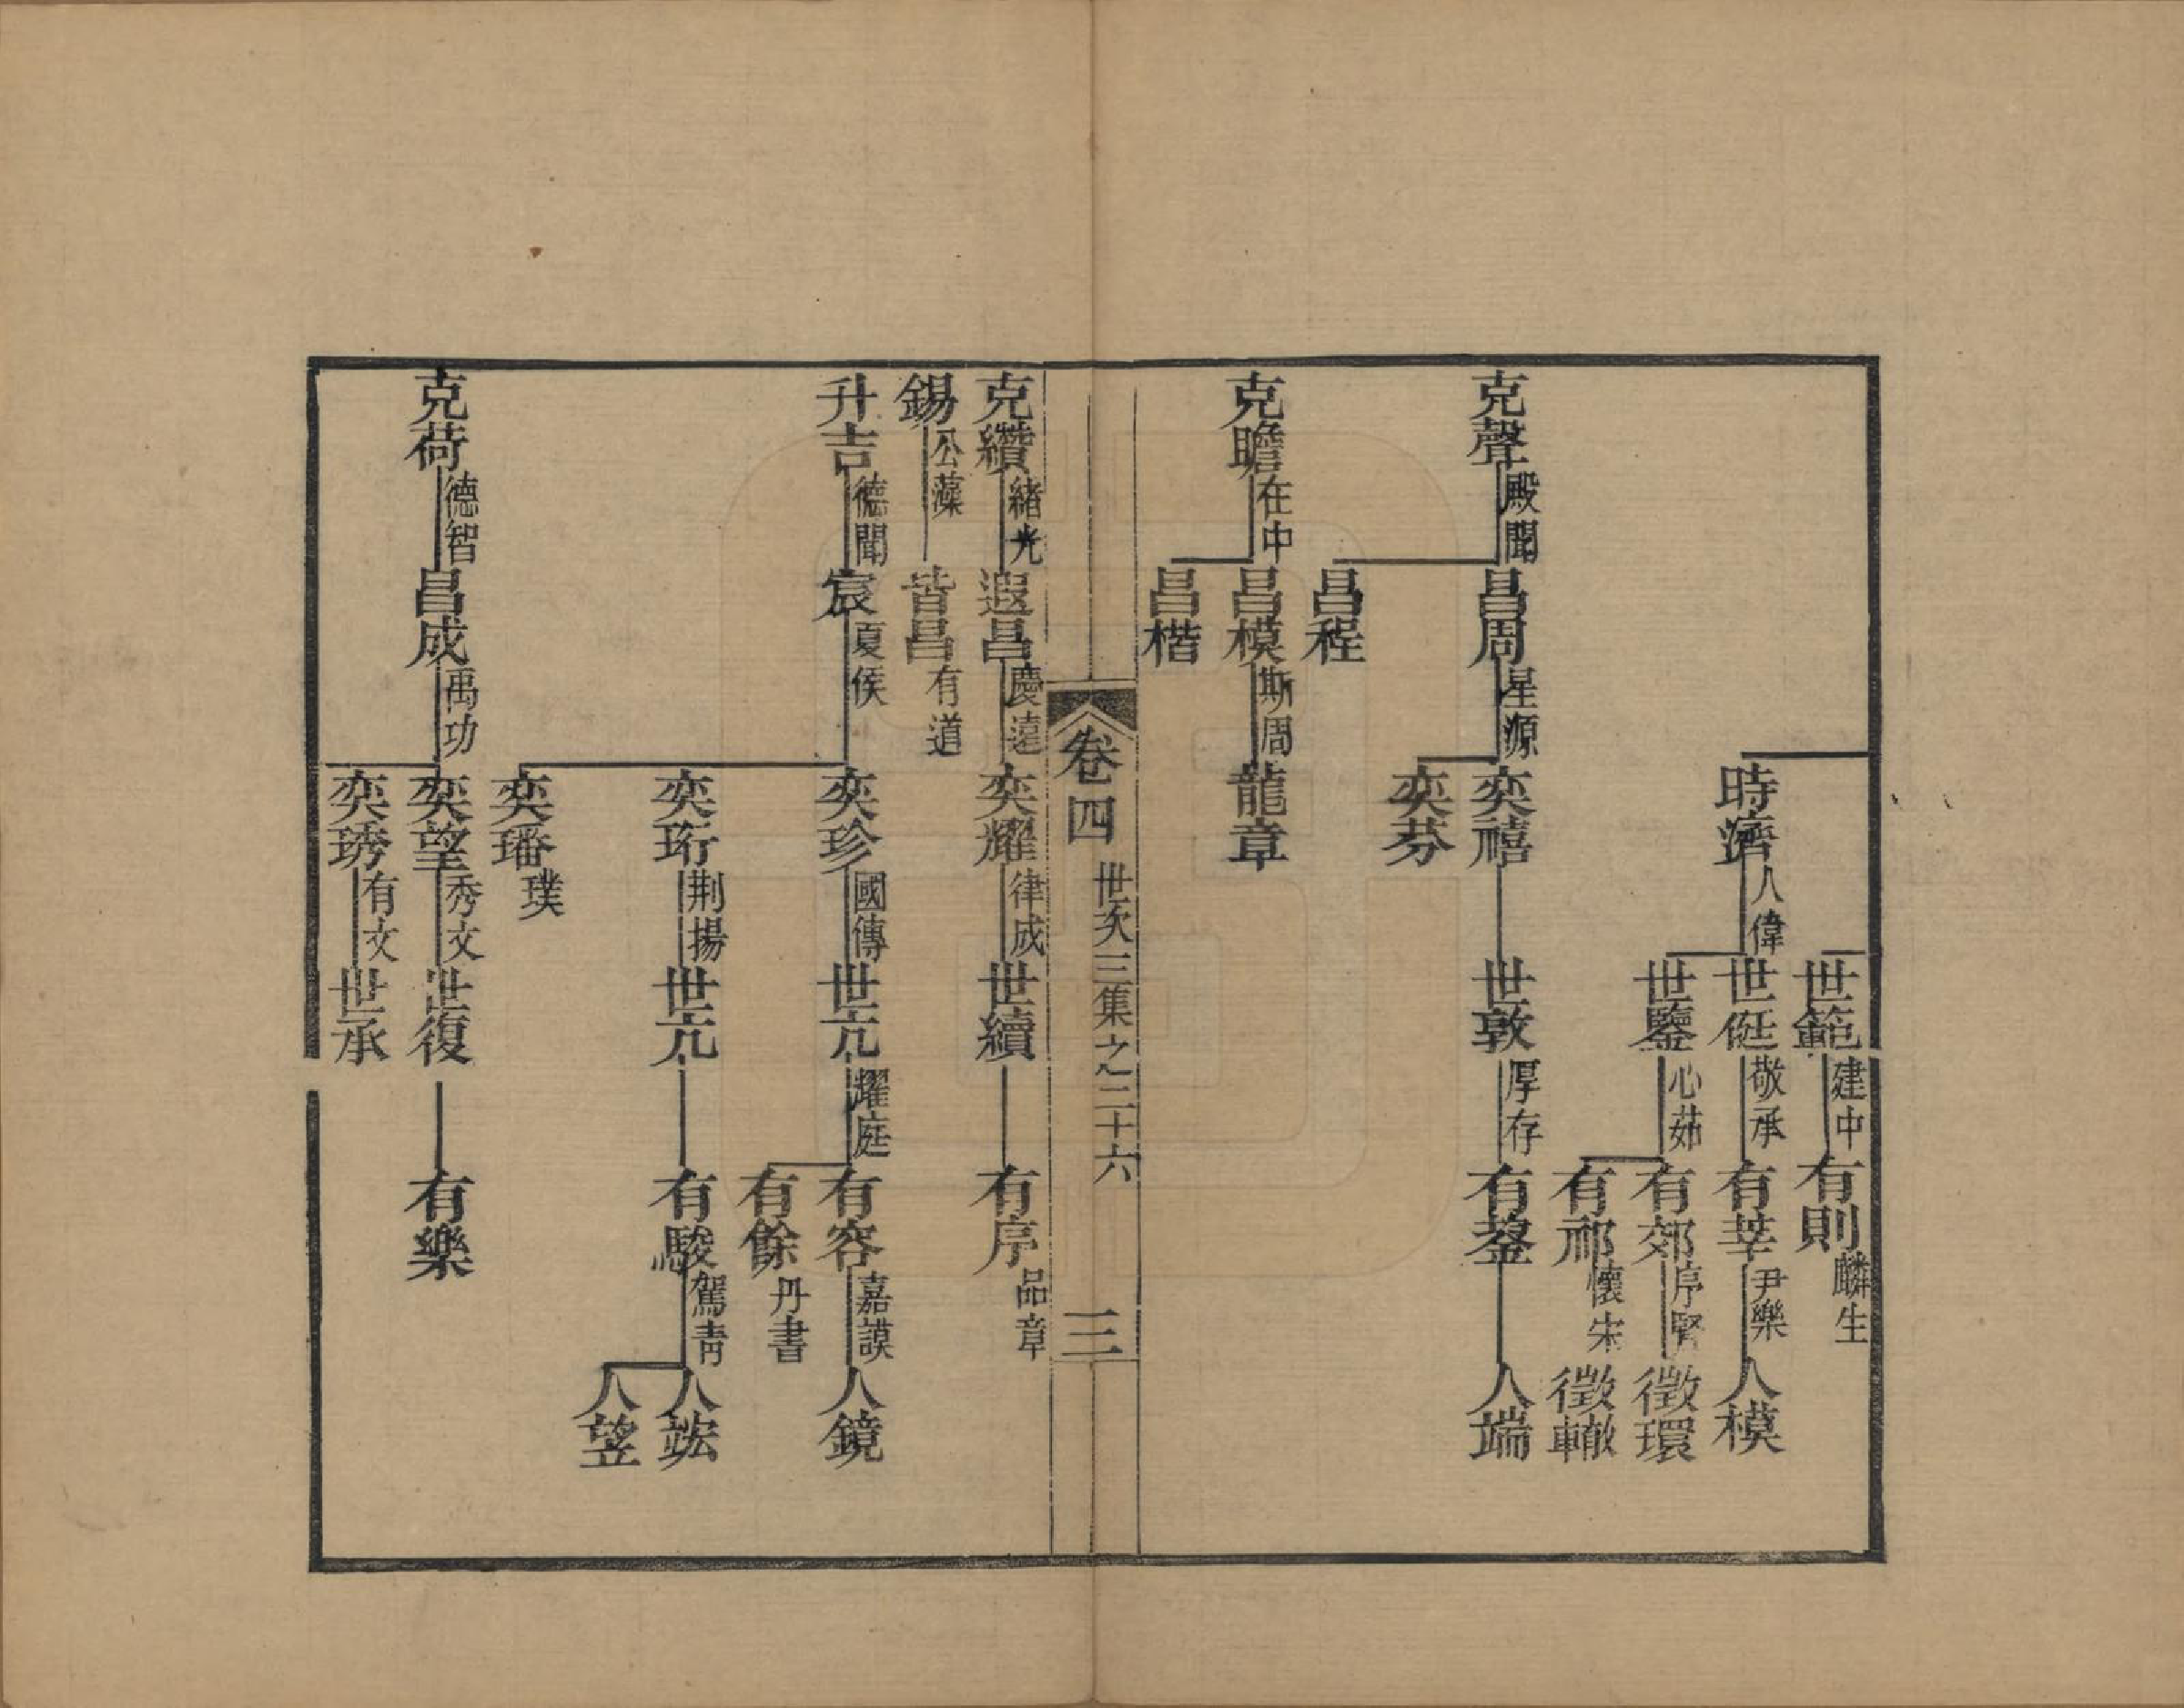 世範 建中 有則 麟生
時濟 人偉 世侹 敬承 有莘 尹樂 人模
世鑒 心茆 有郊 序賢 徵環
有祁 懷宋 徵轍
克聲 殿聞 昌周 星源 奕禧 世敦 厚存 有鋆 人端
奕芬
昌程
克瞻 在中 昌模 斯周 龍章
昌楷
卷四 世次三集之二十六 三
克纘 緒光 遐昌 慶遠 奕耀 律成 世續 有序 品章
錫 公藻 皆昌 有道
升吉 德聞 宸 夏侯 奕珍 國傳 世亢 耀庭 有容 嘉謨 人鏡
有餘 丹書
奕珩 荆揚 世亢 有駿 駕青 人竑
人望
奕璠 璞
克荷 德智 昌成 禹功 奕望 秀文 世復 有樂
奕琇 有文 世承